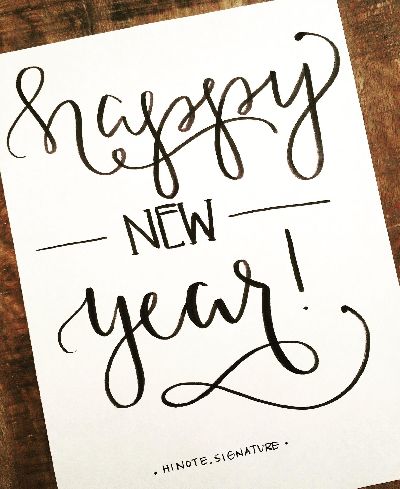 happy
NEW
year!
· HINOTE.SIGNATURE ·